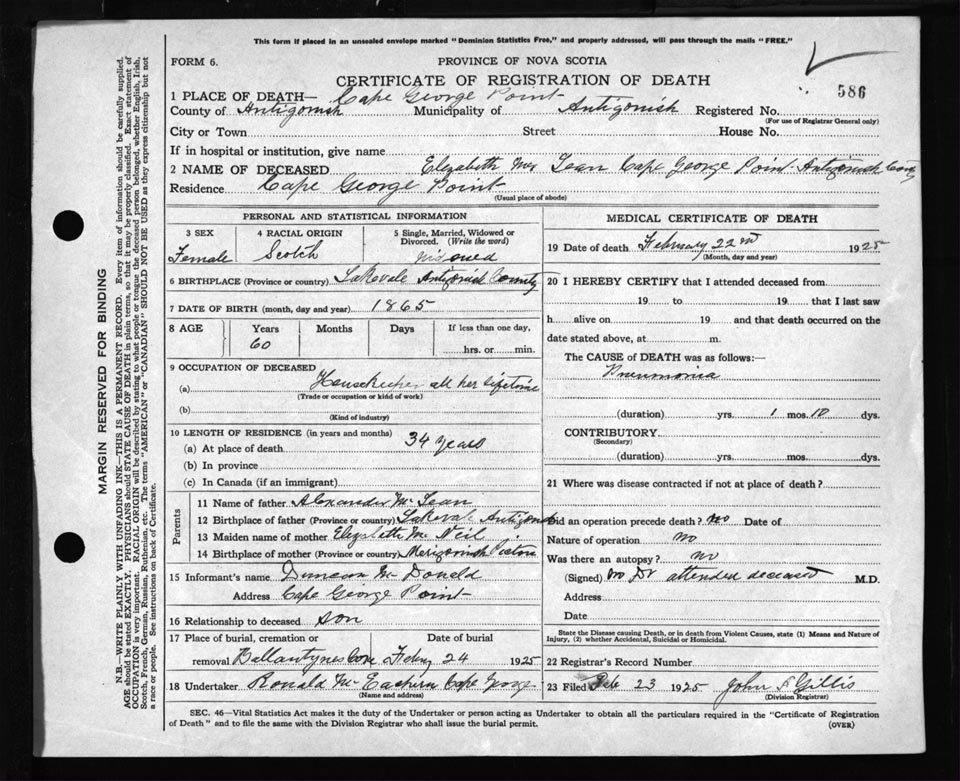 This form if placed in an unsealed envelope marked "Dominion Statistics Free," and properly addressed, will pass through the mails "FREE."
FORM 6.
PROVINCE OF NOVA SCOTIA
CERTIFICATE OF REGISTRATION OF DEATH
586
1 PLACE OF DEATH— Cape George Point
County of Antigonish Municipality of Antigonish Registered No.
(For use of Registrar General only)
City or Town Street House No.
If in hospital or institution, give name
2 NAME OF DECEASED Elizabeth Mc Lean Cape George Point Antigonish
Residence Cape George Point
(Usual place of abode)
PERSONAL AND STATISTICAL INFORMATION
3 SEX 4 RACIAL ORIGIN 5 Single, Married, Widowed or Divorced. (Write the word)
Female Scotch Widowed
6 BIRTHPLACE (Province or country) Lakevale Antigonish County
7 DATE OF BIRTH (month, day and year) 1865
8 AGE Years Months Days If less than one day,
60 hrs. or min.
9 OCCUPATION OF DECEASED
(a) Housekeeper all her lifetime
(Trade or occupation or kind of work)
(b)
(Kind of industry)
10 LENGTH OF RESIDENCE (in years and months)
(a) At place of death 34 years
(b) In province
(c) In Canada (if an immigrant)
Parents
11 Name of father Alexander Mc Lean
12 Birthplace of father (Province or country) Lakevale Antigonish
13 Maiden name of mother Elizabeth Mc Neil
14 Birthplace of mother (Province or country) Merigomish Pictou
15 Informant's name Duncan Mc Donald
Address Cape George Point
16 Relationship to deceased son
17 Place of burial, cremation or Date of burial
removal Ballantynes Cove Feby 24 1925
18 Undertaker Ronald Mc Eachern Cape George
(Name and address)
MEDICAL CERTIFICATE OF DEATH
19 Date of death February 22nd 1925
(Month, day and year)
20 I HEREBY CERTIFY that I attended deceased from
19 to 19 that I last saw
h alive on 19 and that death occurred on the
date stated above, at m.
The CAUSE of DEATH was as follows:—
Pneumonia
(duration) yrs. 1 mos. 10 dys.
CONTRIBUTORY
(Secondary)
(duration) yrs. mos. dys.
21 Where was disease contracted if not at place of death?
Did an operation precede death? no Date of
Nature of operation no
Was there an autopsy? no
(Signed) no Dr attended deceased M.D.
Address
Date
State the Disease causing Death, or in death from Violent Causes, state (1) Means and Nature of
Injury, (2) whether Accidental, Suicidal or Homicidal.
22 Registrar's Record Number
23 Filed Feb 23 1925 John Gillis
(Division Registrar)
SEC. 46—Vital Statistics Act makes it the duty of the Undertaker or person acting as Undertaker to obtain all the particulars required in the "Certificate of Registration
of Death" and to file the same with the Division Registrar who shall issue the burial permit. (OVER)
MARGIN RESERVED FOR BINDING
N.B.—WRITE PLAINLY WITH UNFADING INK—THIS IS A PERMANENT RECORD. Every item of information should be carefully supplied.
AGE should be stated EXACTLY. PHYSICIANS should STATE CAUSE OF DEATH in plain terms, so that it may be properly classified. Exact statement of
OCCUPATION is very important. RACIAL ORIGIN will be described by stating to what people or tongue the deceased person belonged, whether English, Irish,
Scotch, French, German, Russian, Ruthenian, etc. The terms "AMERICAN" or "CANADIAN" SHOULD NOT BE USED as they express citizenship but not
a race or people. See instructions on back of Certificate.